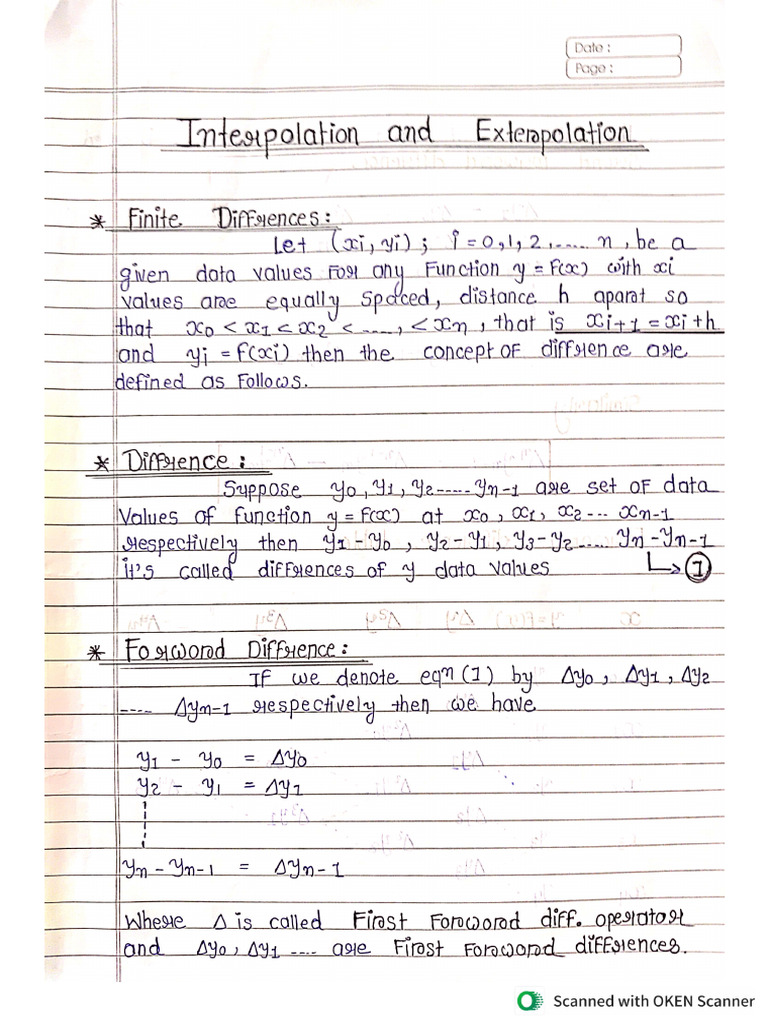 Date :
Page :
Interpolation and Exterpolation
* Finite Differences:
Let (xi, yi) ; i = 0, 1, 2, ..... n, be a
given data values For any Function y = F(x) with xi
values are equally Spaced, distance h apart so
that x0 < x1 < x2 < ...., < xn , that is xi+1 = xi+h
and yi = f(xi) then the concept OF diffrence are
defined as Follows.
* Diffrence :
Suppose y0, y1, y2 ..... yn-1 are set OF data
Values of function y = F(x) at x0, x1, x2 ... xn-1
respectively then y1 - y0 , y2 - y1, y3 - y2 ..... yn - yn-1
it's called diffrences of y data values ↳ (1)
* Forword Diffrence :
IF we denote eqn (1) by Δy0, Δy1, Δy2
.... Δyn-1 respectively then we have
y1 - y0 = Δy0
y2 - y1 = Δy1
yn - yn-1 = Δyn-1
Where Δ is called First Forword diff. operator
and Δy0, Δy1 .... are First Forword diffrences.
Scanned with OKEN Scanner